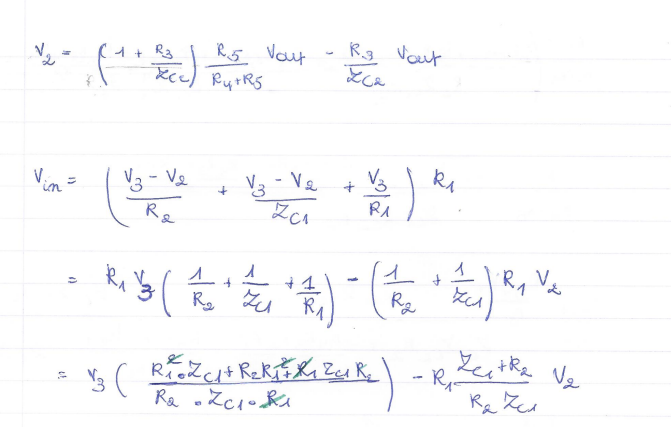 V₂ = (1 + R₃/Z_C2) R₅/(R₄+R₅) Vout - R₃/Z_C2 Vout
Vin = ((V₃ - V₂)/R₂ + (V₃ - V₂)/Z_C1 + V₃/R₁) R₁
= R₁ V₃ (1/R₂ + 1/Z_C1 + 1/R₁) - (1/R₂ + 1/Z_C1) R₁ V₂
= V₃ ((R₁²·Z_C1 + R₂R₁² + R₁ Z_C1 R₂)/(R₂ · Z_C1 · R₁)) - R₁ (Z_C1 + R₂)/(R₂ Z_C1) V₂